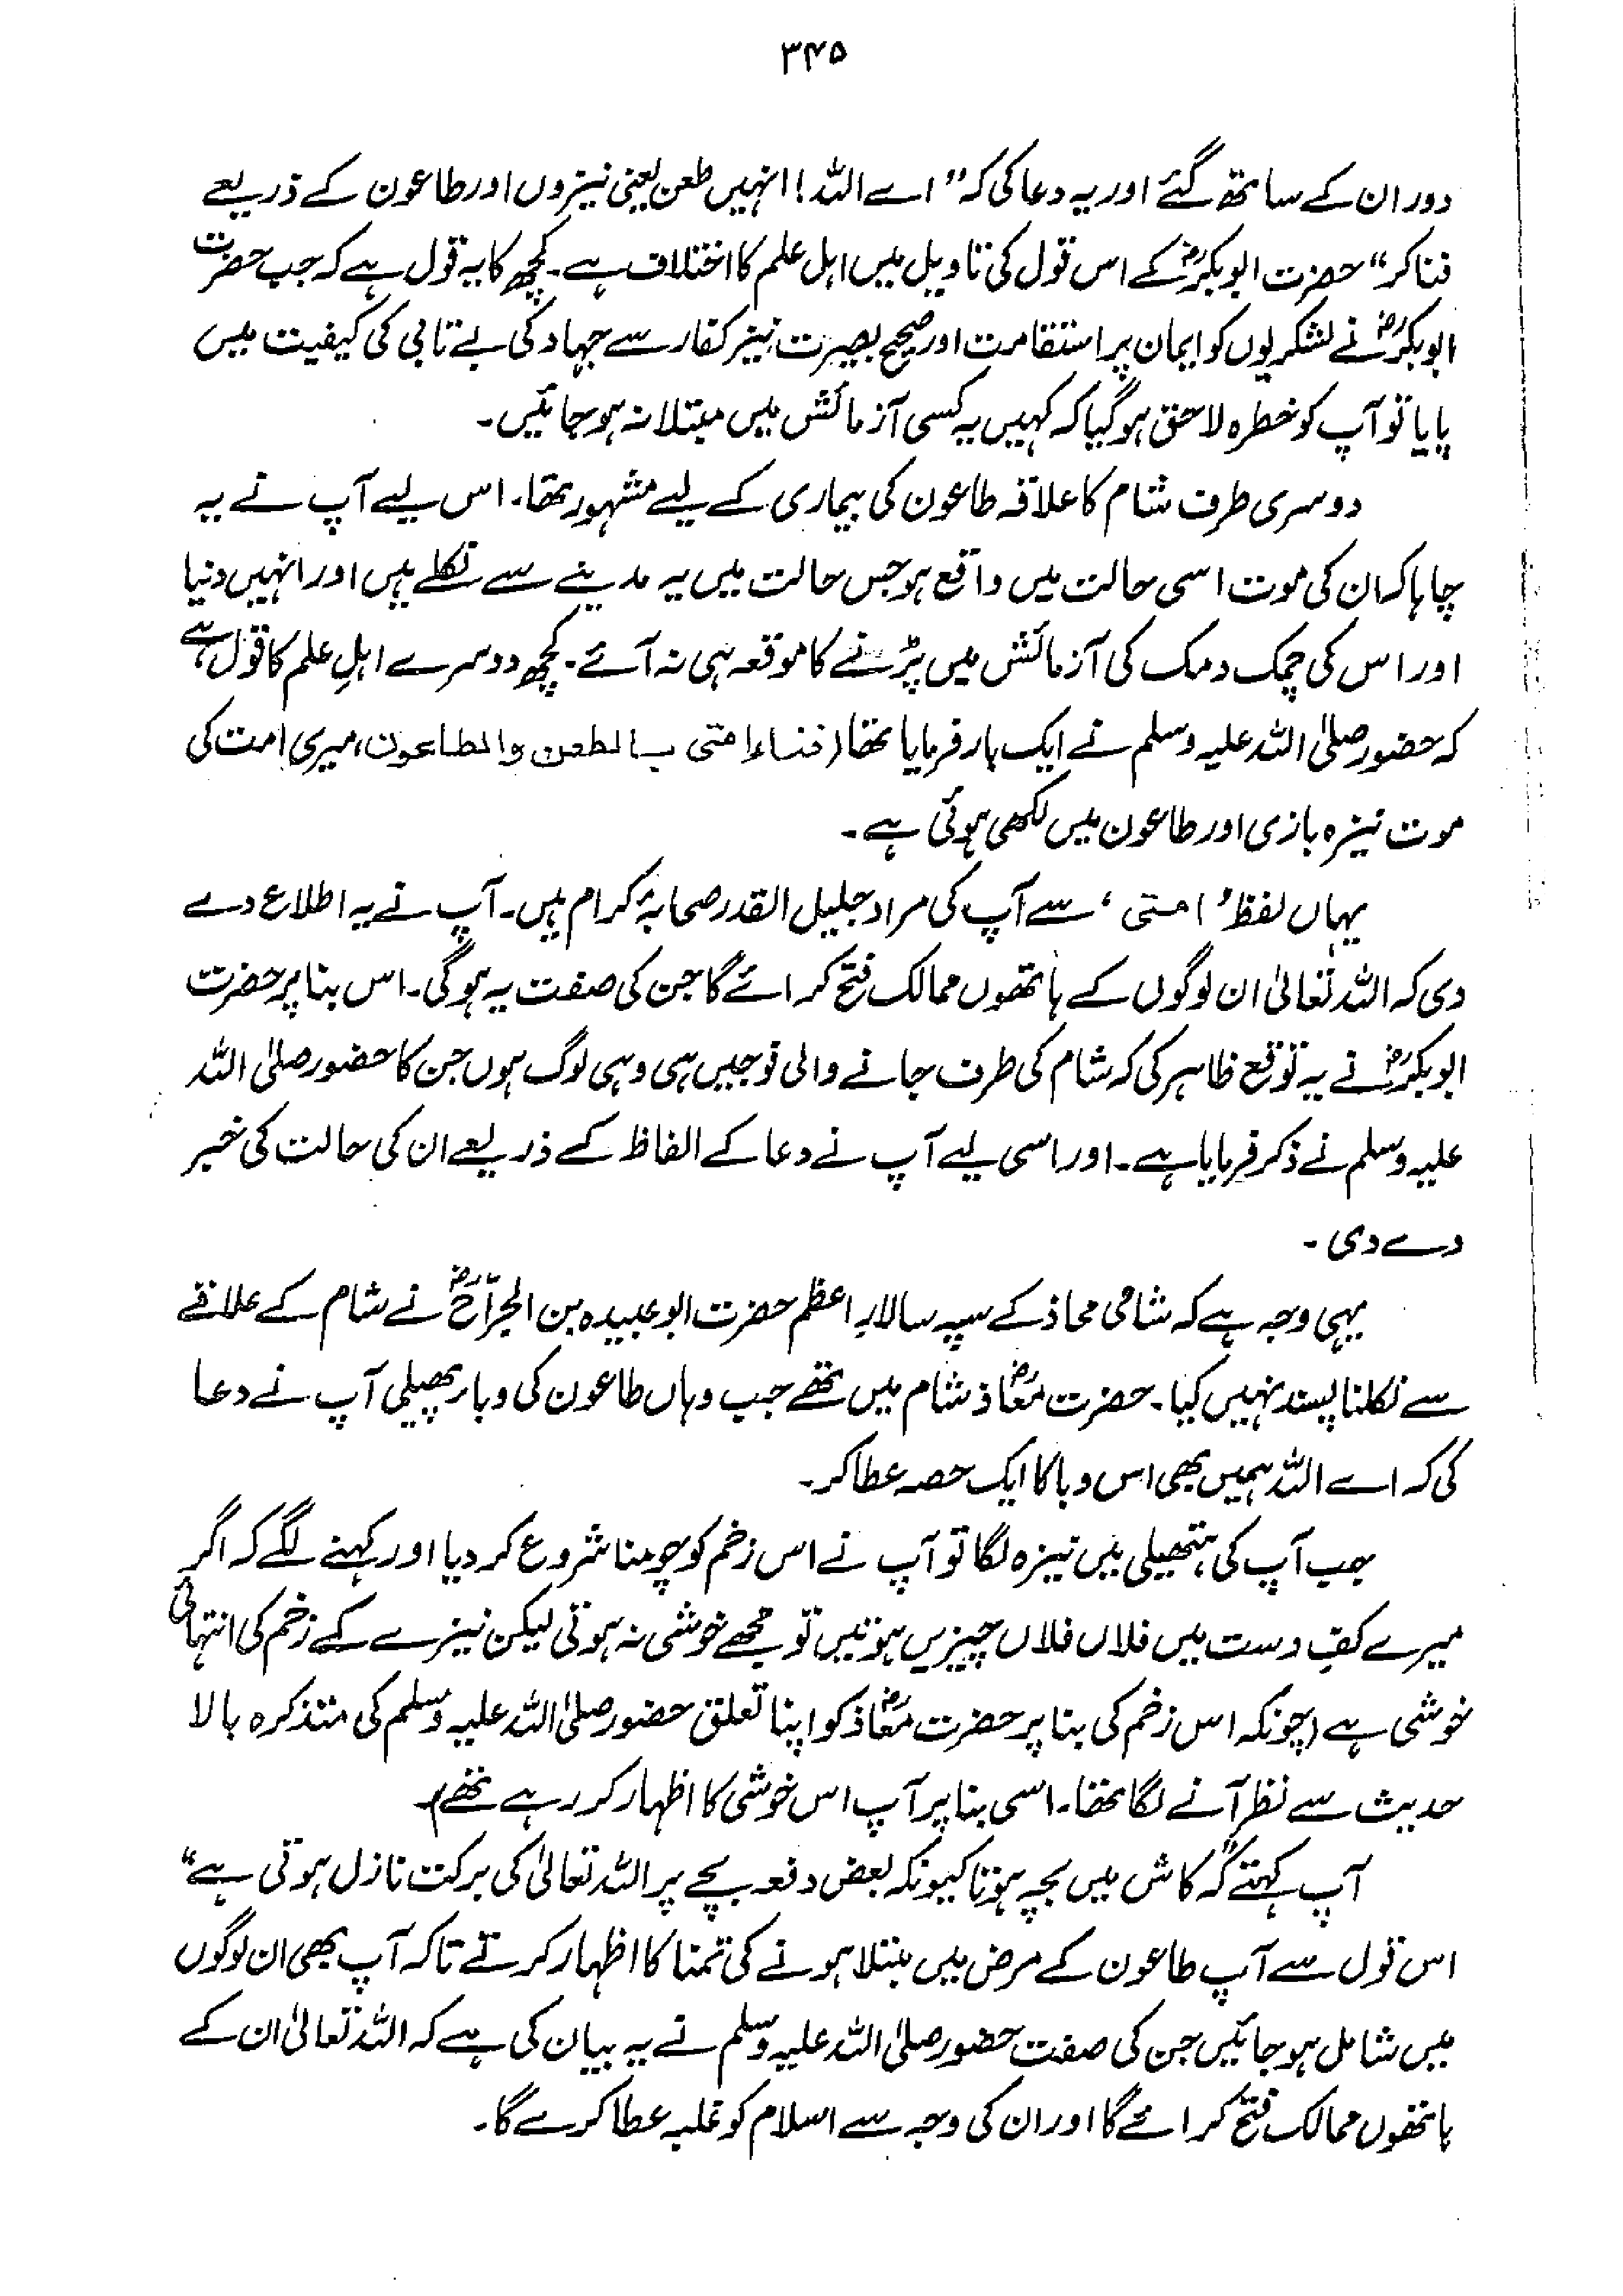 ۳۴۵
دور ان کے ساتھ گئے اور یہ دعا کی کہ "اے اللہ! انہیں طعن یعنی نیزوں اور طاعون کے ذریعے
فنا کر" حضرت ابوبکرؓ کے اس قول کی تاویل میں اہل علم کا اختلاف ہے۔ کچھ کا یہ قول ہے کہ جب حضرت
ابوبکرؓ نے لشکریوں کو ایمان پر استقامت اور صحیح بصیرت نیز کفار سے جہاد کی بے تابی کی کیفیت میں
پایا تو آپ کو خطرہ لاحق ہو گیا کہ کہیں یہ کسی آزمائش میں مبتلا نہ ہو جائیں۔
دوسری طرف شام کا علاقہ طاعون کی بیماری کے لیے مشہور تھا۔ اس لیے آپ نے یہ
چاہا کہ ان کی موت اسی حالت میں واقع ہو جس حالت میں یہ مدینے سے نکلے ہیں اور انہیں دنیا
اور اس کی چمک دمک کی آزمائش میں پڑنے کا موقعہ ہی نہ آئے۔ کچھ دوسرے اہلِ علم کا قول ہے
کہ حضور صلی اللہ علیہ وسلم نے ایک بار فرمایا تھا (فناء امتی بالطعن والطاعون، میری امت کی
موت نیزہ بازی اور طاعون میں لکھی ہوئی ہے۔
یہاں لفظ ' امتی ' سے آپ کی مراد جلیل القدر صحابۂ کرام ہیں۔ آپ نے یہ اطلاع دے
دی کہ اللہ تعالیٰ ان لوگوں کے ہاتھوں ممالک فتح کرائے گا جن کی صفت یہ ہوگی۔ اس بنا پر حضرت
ابوبکرؓ نے یہ توقع ظاہر کی کہ شام کی طرف جانے والی فوجیں ہی وہی لوگ ہوں جن کا حضور صلی اللہ
علیہ وسلم نے ذکر فرمایا ہے۔ اور اسی لیے آپ نے دعا کے الفاظ کے ذریعے ان کی حالت کی خبر
دے دی۔
یہی وجہ ہے کہ شامی محاذ کے سپہ سالارِ اعظم حضرت ابوعبیدہ بن الجرّاحؓ نے شام کے علاقے
سے نکلنا پسند نہیں کیا۔ حضرت معاذؓ شام میں تھے جب وہاں طاعون کی وبار پھیلی آپ نے دعا
کی کہ اے اللہ ہمیں بھی اس وبا کا ایک حصہ عطا کر۔
جب آپ کی ہتھیلی میں نیزہ لگا تو آپ نے اس زخم کو چومنا شروع کر دیا اور کہنے لگے کہ اگر
میرے کفِ دست میں فلاں فلاں چیزیں ہوتیں تو مجھے خوشی نہ ہوتی لیکن نیزے کے زخم کی انتہائی
خوشی ہے (چونکہ اس زخم کی بنا پر حضرت معاذؓ کو اپنا تعلق حضور صلی اللہ علیہ وسلم کی متذکرہ بالا
حدیث سے نظر آنے لگا تھا۔ اسی بنا پر آپ اس خوشی کا اظہار کر رہے تھے)۔
آپ کہتے کہ "کاش میں بچہ ہوتا کیونکہ بعض دفعہ بچے پر اللہ تعالیٰ کی برکت نازل ہوتی ہے"
اس قول سے آپ طاعون کے مرض میں مبتلا ہونے کی تمنا کا اظہار کرتے تاکہ آپ بھی ان لوگوں
میں شامل ہو جائیں جن کی صفت حضور صلی اللہ علیہ وسلم نے یہ بیان کی ہے کہ اللہ تعالیٰ ان کے
ہاتھوں ممالک فتح کرائے گا اور ان کی وجہ سے اسلام کو غلبہ عطا کرے گا۔